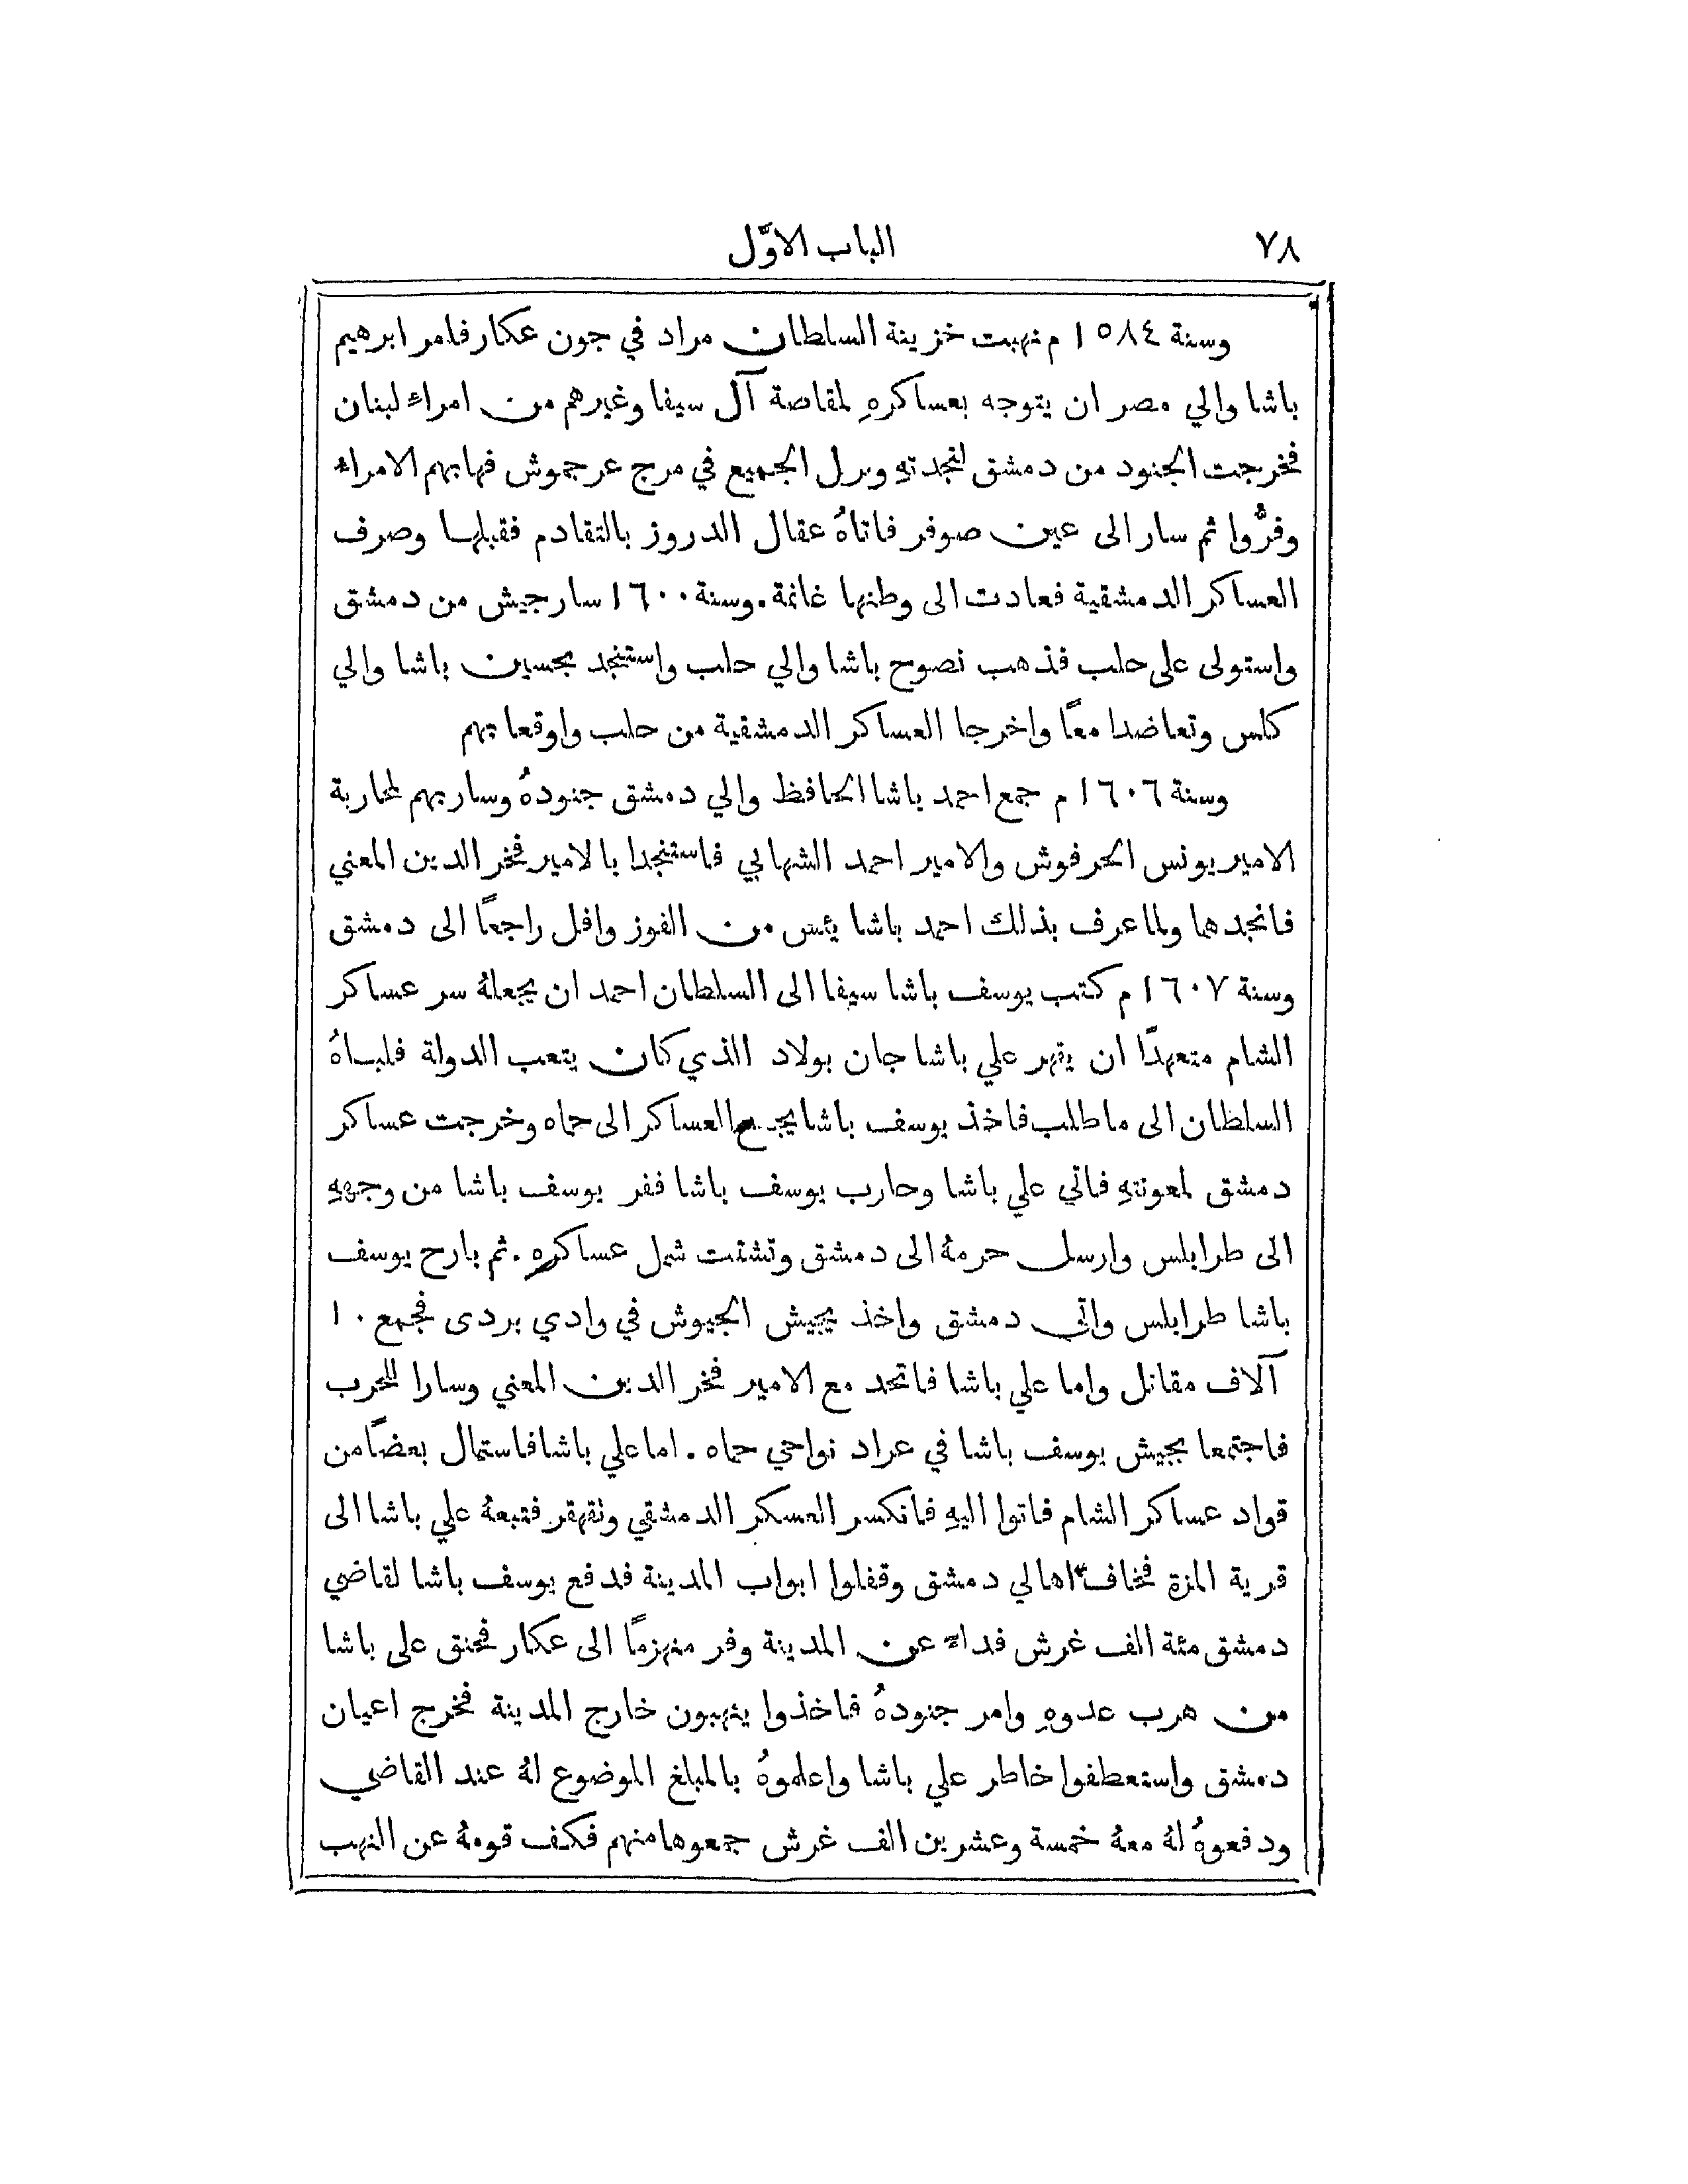 ٧٨
الباب الاوّل
وسنة ١٥٨٤ م نهبت خزينة السلطان مراد في جون عكار فامر ابرهيم
باشا والي مصر ان يتوجه بعساكرهِ لمقاصة آل سيفا وغيرهم من امراء لبنان
فخرجت الجنود من دمشق لنجدتهِ ونزل الجميع في مرج عرجموش فهابهم الامراء
وفرُّوا ثم سار الى عين صوفر فاتاهُ عقال الدروز بالتقادم فقبلها وصرف
العساكر الدمشقية فعادت الى وطنها غانمة. وسنة ١٦٠٠ سار جيش من دمشق
واستولى على حلب فذهب نصوح باشا والي حلب واستنجد بحسين باشا والي
كلس وتعاضدا معًا واخرجا العساكر الدمشقية من حلب واوقعا بهم
وسنة ١٦٠٦ م جمع احمد باشا الحافظ والي دمشق جنودهُ وسار بهم لمحاربة
الامير يونس الحرفوش والامير احمد الشهابي فاستنجدا بالامير فخر الدين المعني
فانجدها ولما عرف بذلك احمد باشا يئس من الفوز وافل راجعًا الى دمشق
وسنة ١٦٠٧ م كتب يوسف باشا سيفا الى السلطان احمد ان يجعلهُ سر عساكر
الشام متعهدًا ان يقهر علي باشا جان بولاد الذي كان يتعب الدولة فلباهُ
السلطان الى ما طلب فاخذ يوسف باشا يجمع العساكر الى حماه وخرجت عساكر
دمشق لمعونتهِ فاتي علي باشا وحارب يوسف باشا ففر يوسف باشا من وجههِ
الى طرابلس وارسل حرمهُ الى دمشق وتشتت شمل عساكره. ثم بارح يوسف
باشا طرابلس واتى دمشق واخذ يجيش الجيوش في وادي بردى فجمع ١٠
آلاف مقاتل واما علي باشا فاتحد مع الامير فخر الدين المعني وسارا للحرب
فاجتمعا بجيش يوسف باشا في عراد نواحي حماه. اما علي باشا فاستمال بعضًا من
قواد عساكر الشام فاتوا اليهِ فانكسر العسكر الدمشقي وتقهقر فتبعهُ علي باشا الى
قرية المزة فخاف اهالي دمشق وقفلوا ابواب المدينة فدفع يوسف باشا لقاضي
دمشق مئة الف غرش فداء عن المدينة وفر منهزمًا الى عكار فحنق علي باشا
من هرب عدوهِ وامر جنودهُ فاخذوا ينهبون خارج المدينة فخرج اعيان
دمشق واستعطفوا خاطر علي باشا واعلموهُ بالمبلغ الموضوع لهُ عند القاضي
ودفعوهُ لهُ معهُ خمسة وعشرين الف غرش جمعوها منهم فكف قومهُ عن النهب